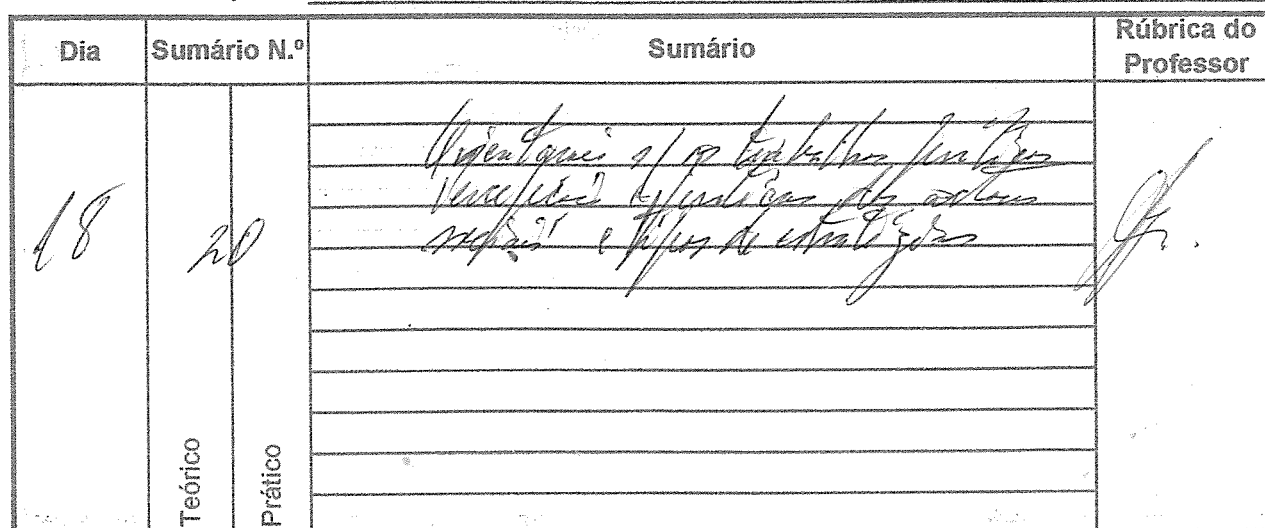 Dia
Sumário N.º
Sumário
Rúbrica do
Professor
18
20
Orientações s/ os trabalhos práticos
dos actores
sociais e tipos de estratégias
Teórico
Prático